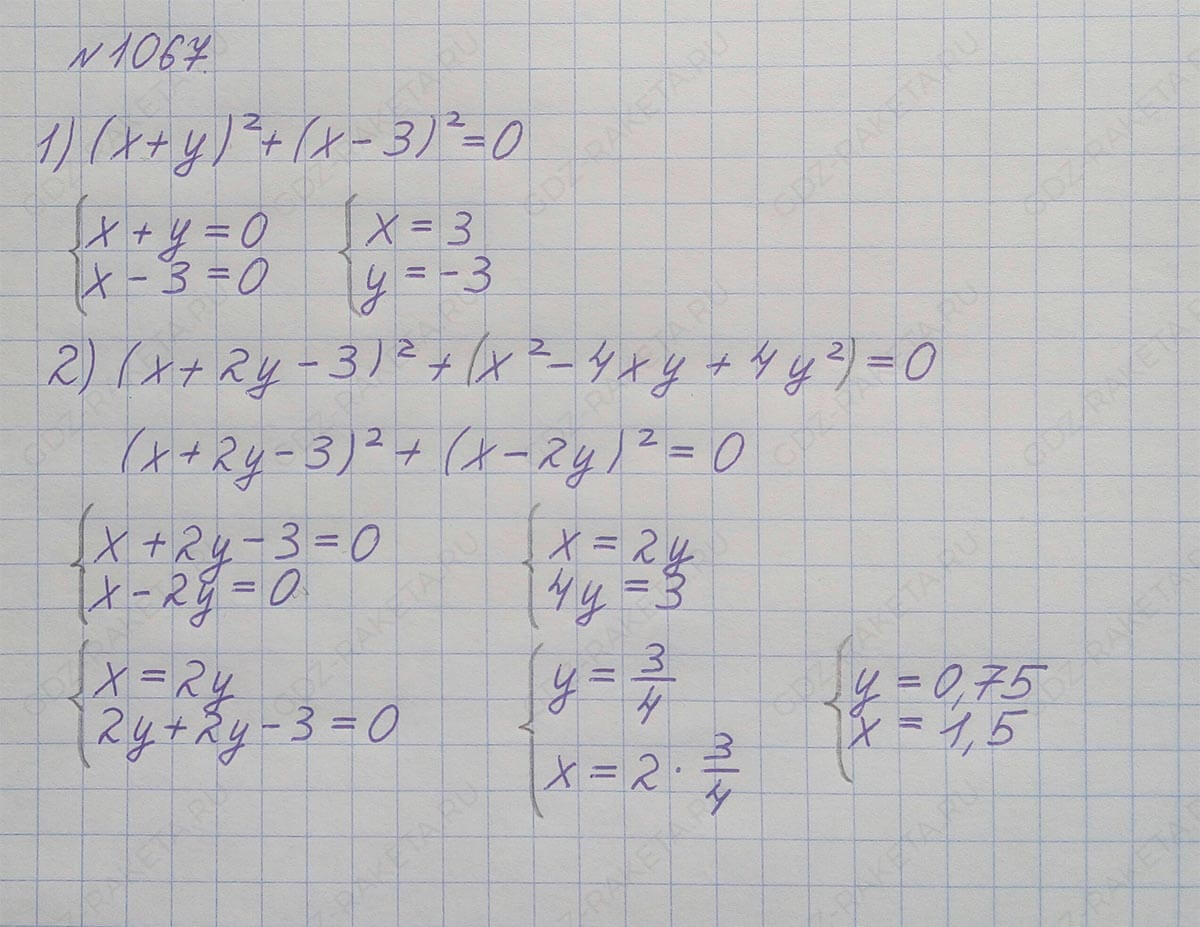 №1067.
1) (x+y)²+(x-3)²=0
{x+y=0 {x=3
x-3=0 y=-3
2) (x+2y-3)²+(x²-4xy+4y²)=0
(x+2y-3)²+(x-2y)²=0
{x+2y-3=0 {x=2y
x-2y=0 4y=3
{x=2y {y=3/4 {y=0,75
2y+2y-3=0 x=2·3/4 x=1,5
GDZ-RAKETA.RU